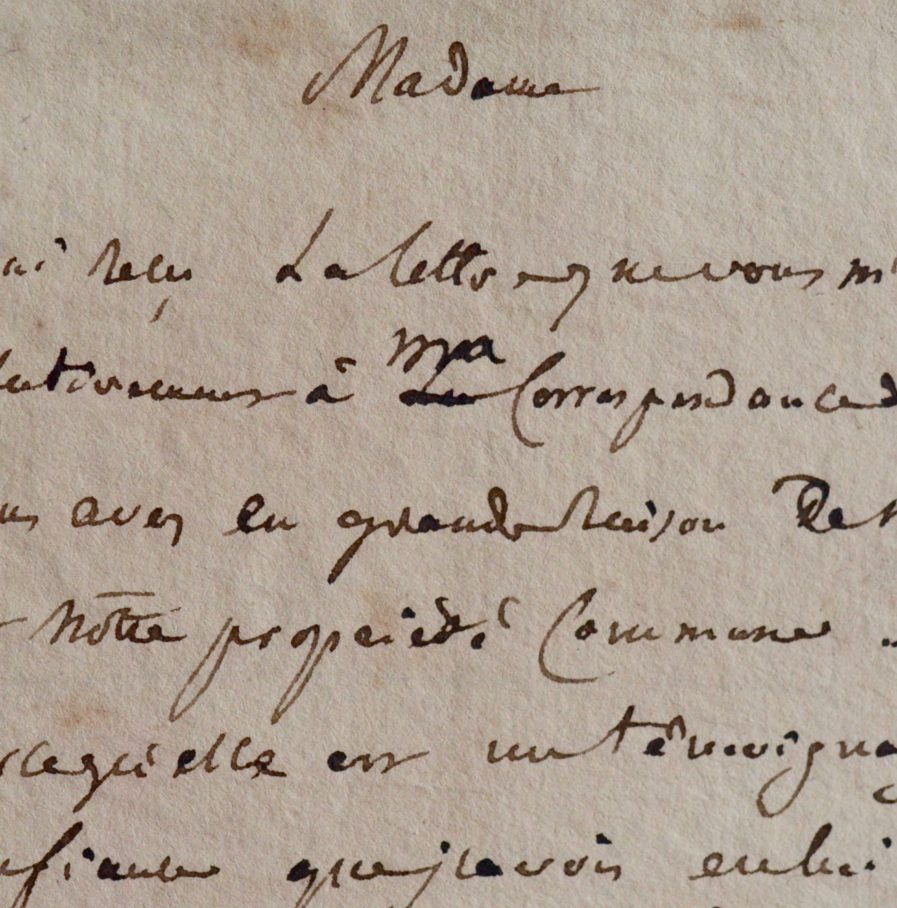 Madame
ai reçu La lettre que vous m'
lativement à ma Correspondance d
us avez eu grande raison De
notre propriété Commune
ce qu'elle est un témoigna
fiance que j'avois en lui